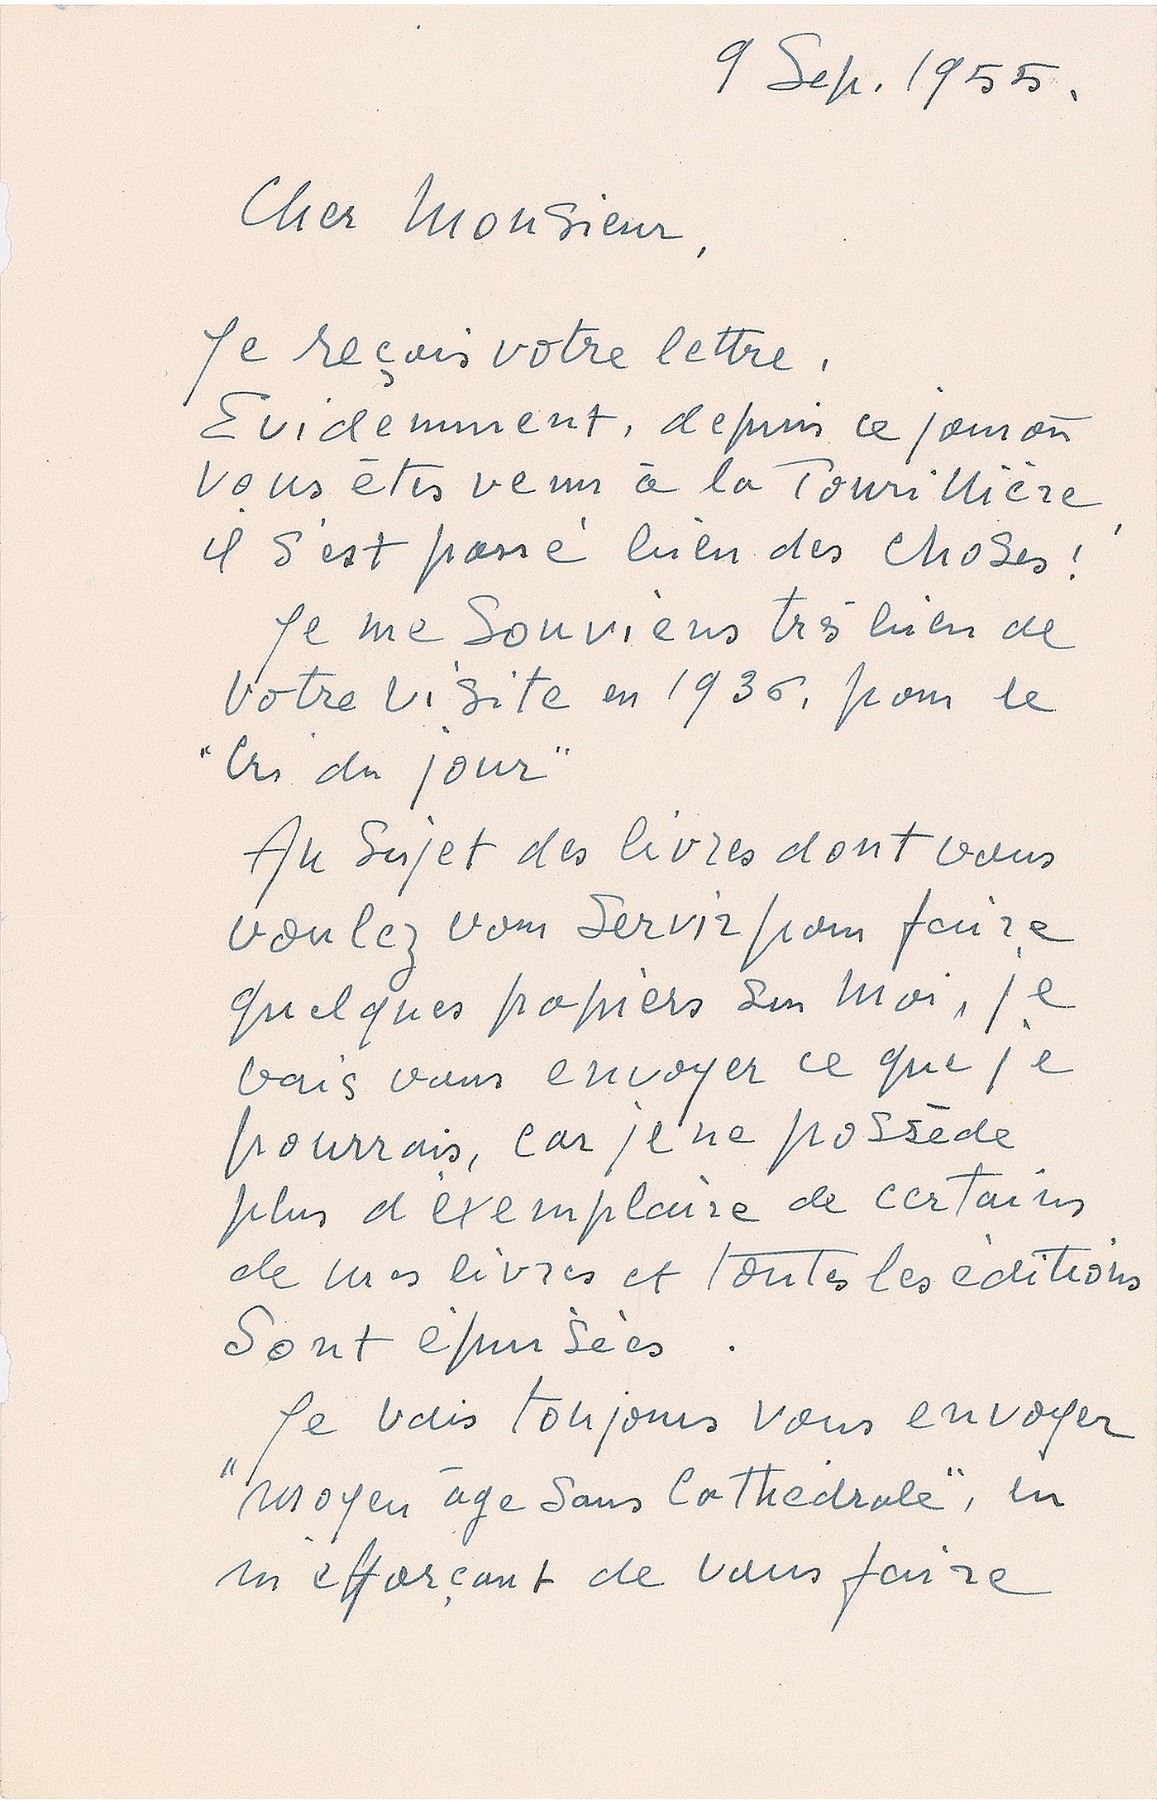 9 Sep. 1955.
Cher Monsieur,
Je reçois votre lettre.
Evidemment, depuis ce jour où
vous êtes venu à la Tourillière,
il s'est passé bien des choses !
Je me souviens très bien de
votre visite en 1936, pour le
"Cri du jour"
Au sujet des livres dont vous
voulez vous servir pour faire
quelques papiers sur moi, je
vais vous envoyer ce que je
pourrais, car je ne possède
plus d'éxemplaire de certains
de mes livres et toutes les éditions
sont épuisées.
Je vais toujours vous envoyer
"moyen âge sans Cathédrale", en
m'efforçant de vous faire